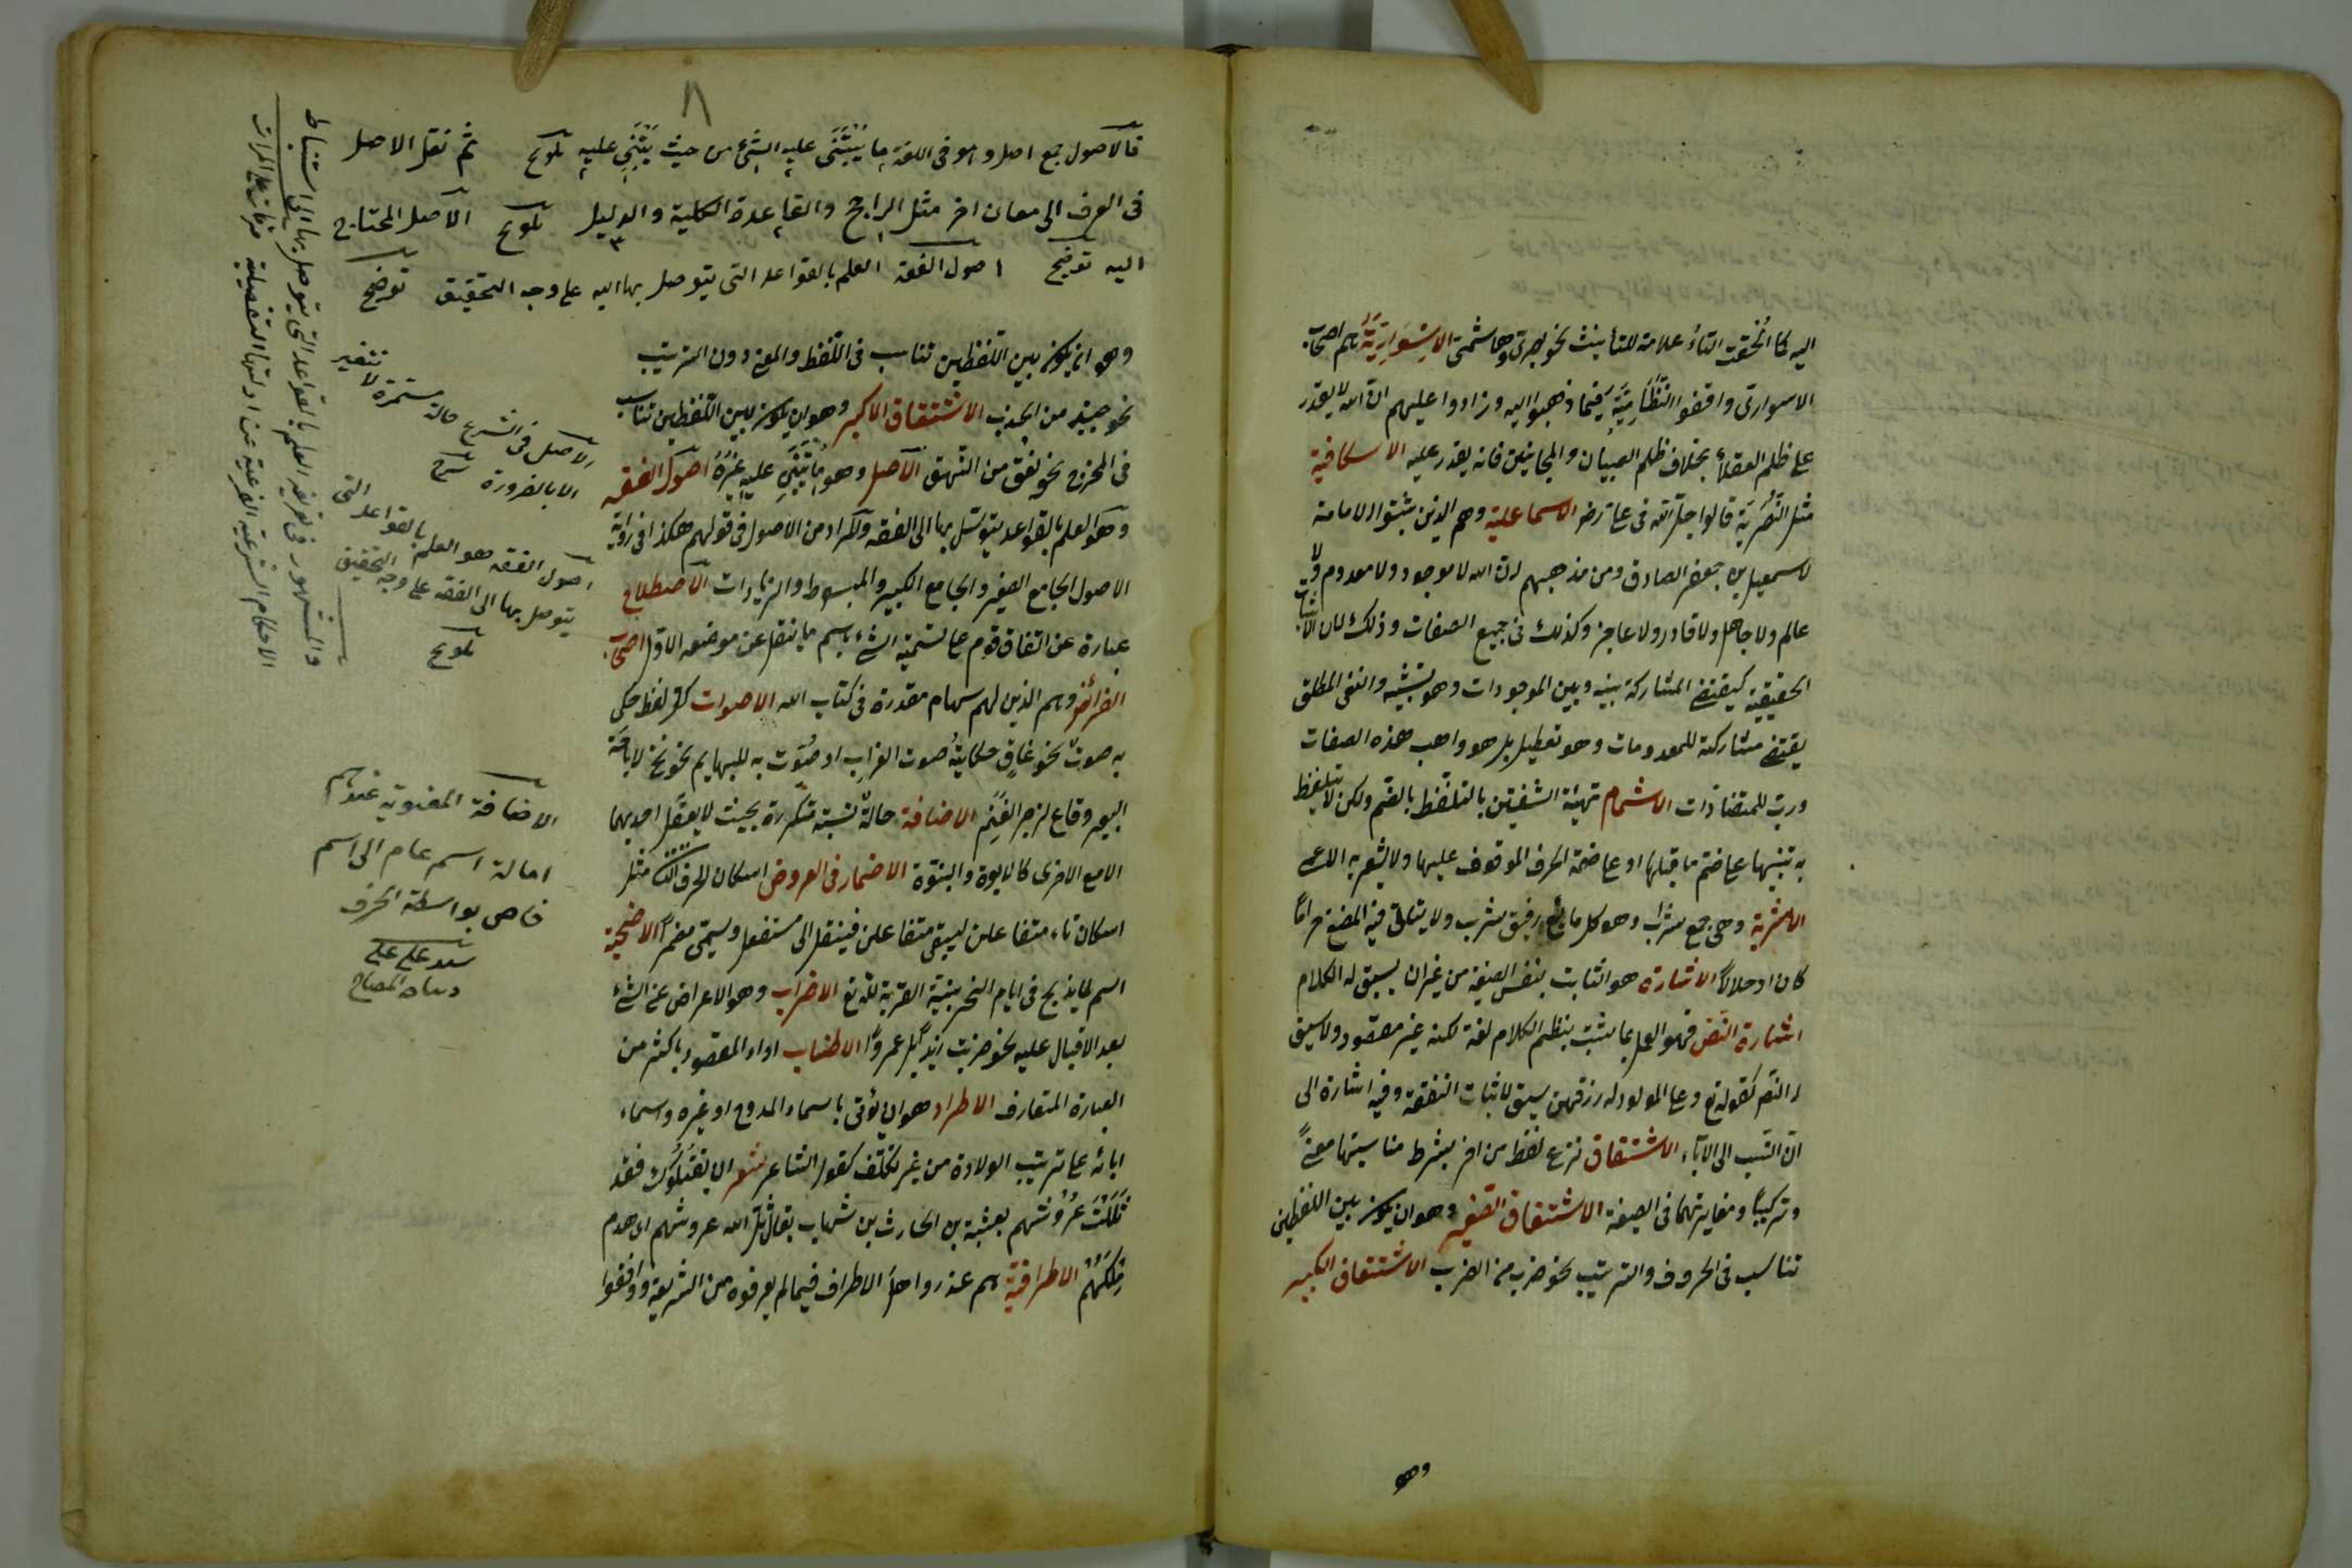 اليه كما أُلحقت التاءُ علامة للتأنيث نحو بصرىّ وهاشمىّ الاسوارِيَّةُ هم اصحاب
الاسوارى وافقوا النَّظَّامِيَّةَ فيما ذهبوا اليه وزادوا عليهم انّ الله لا يقدر
على ظلم العقلاءِ بخلاف ظلم الصبيان والمجانين فانه يقدر عليه الاسكافية
مثل النُّصَرِيَّة قالوا حلّ الله فى على رض الاسماعلية وهم الذين يثبتوا الامامة
لاسمعيل بن جعفر الصادق ومن مذهبهم ان الله لا موجود ولا معدوم ولا
عالم ولا جاهل ولا قادر ولا عاجز وكذلك فى جميع الصفات وذلك لان الاثبات
الحقيقية يقتضى المشاركة بينه وبين الموجودات وهو تشبيه والنفى المطلق
يقتضى مشاركته للمعدومات وهو تعطيل بل هو واهب هذه الصفات
ورب للمتضادات الاشمام تهيئة الشفتين بالتلفّظ بالضم ولكن لا يتلفظ
به تنبيها على ضم ما قبلها او على ضمة الحرف الموقوف عليها ولا يشعر به الاعمى
الاشربة وهى جمع شراب وهو كل مائع رقيق يشرب ولا يتأتى فيه المضغ حراماً
كان او حلالاً الاشارة هو الثابت بنفس الصيغة من غير ان يسبق له الكلام
اشارة النّص فهو العمل بما يثبت بنظم الكلام لغة لكنه غير مقصود ولا سيق
له النصّ كقوله تع وعلى المولود له رزقهن سيق لاثبات النفقة وفيه اشارة الى
انّ النّسب الى الآباء الاشتقاق نزع لفظ من اخر بشرط مناسبتهما معنىً
وتركيباً ومغايرتهما فى الصيغة الاشتقاق الصّغير وهو ان يكون بين اللفظين
تناسب فى الحروف والترتيب نحو ضرب من الضرب الاشتقاق الكبير
وهو
٨
فالاصول جمع اصل وهو فى اللغة ما يُبْتَنَى عليه الشئ من حيث يُبْتَنَى عليه تلويح ثم نقل الاصل
فى العرف الى معان اخر مثل الراجح والقاعدة الكلية والدليل تلويح الاصل المحتاج
اليه توضيح اصول الفقه العلم بالقواعد التى يتوصل بها اليه على وجه التحقيق توضيح
وهو ان يكون بين اللّفظين تناسب فى اللّفظ والمعنى دون الترتيب
نحو جبذ من الجذب الاشتقاق الاكبر وهو ان يكون بين اللّفظين تناسب
فى المخرج نحو نعق من النّهق الاصل وهو ما يُبْتَنَى عليه غيرُهُ اصول الفقه
وهو العلم بالقواعد يتوسّل بها الى الفقه والمراد من الاصول فى قولهم هكذا فى رواية
الاصول الجامع الصغير والجامع الكبير والمبسوط والزيادات الاصطلاح
عبارة عن اتفاق قوم على تسمية الشئ باسم ما ينقل عن موضعه الاول اصحاب
الفرائض وهم الذين لهم سهام مقدرة فى كتاب الله الاصوات كل لفظ حكى
به صوتٌ نحو غاقٍ حكايةُ صوت الغراب او صُوّت به للبهايم نحو نخ لاناخة
البعير وقاع لزجر الغَنَمِ الاضافة حالة نسبيّة متكررة بحيث لا يعقل احديهما
الا مع الاخرى كالابوة والبنوّة الاضمار فى العروض اسكان الحرف الثانى مثل
اسكان تاء متفاعلن ليبقى متفاعلن فينقل الى مستفعل ويسمّى مضمراً الاضحية
اسم لما يذبح فى ايام النحر بنية القربة لله تع الاضراب وهو الاعراض عن الشئ
بعد الاقبال عليه نحو ضربت زيداً بل عمرواً الاطناب اداء المقصود باكثر من
العبارة المتعارف الاطراد هو ان يؤتى باسماء الممدوح او غيره واسماء
ابائه على ترتيب الولادة من غير تكلّف كقول الشاعر شعر ان يقتلُوك فقد
ثَلَلْتَ عُرُوشَهم بعتيبة بن الحارث بن شهاب يقال ثلّ الله عروشهم اى هدم
مِلكَهُمْ الاطرافيّة هم عذروا اهل الاطراف فيما لم يعرفوه من الشريعة ووافقوا
الاصل فى الشرع حالة مستمرة لا تتغير
الا بالضرورة شرح
اصول الفقه هو العلم بالقواعد التى
يتوصل بها الى الفقه على وجه التحقيق
تلويح
والمشهور فى تعريفه العلم بالقواعد التى يتوصل بها الى استنباط
الاحكام الشرعية الفرعية عن ادلتها التفصيلية
الاضافة المعنوية عندهم
امالة اسم عام الى اسم
خاص بواسطة الحرف